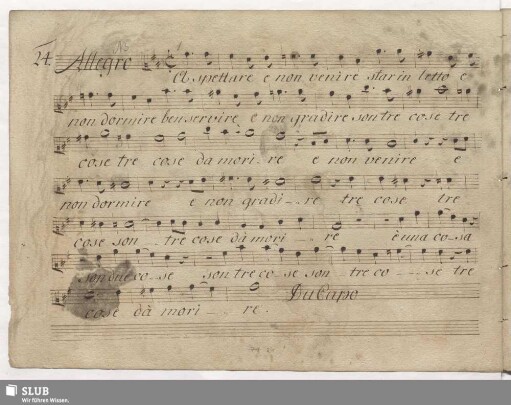 24 Allegro
Aspettare e non venire star in letto e
non dormire ben servire e non gradire son tre cose tre
cose tre cose da mori-re e non venire e
non dormire e non gradi--re tre cose tre
cose son--tre cose dà mori--re è una co-sa
son due co-se son tre co-se son tre co---se tre
cose dà mori--re. Da Capo
SLUB
Wir führen Wissen.